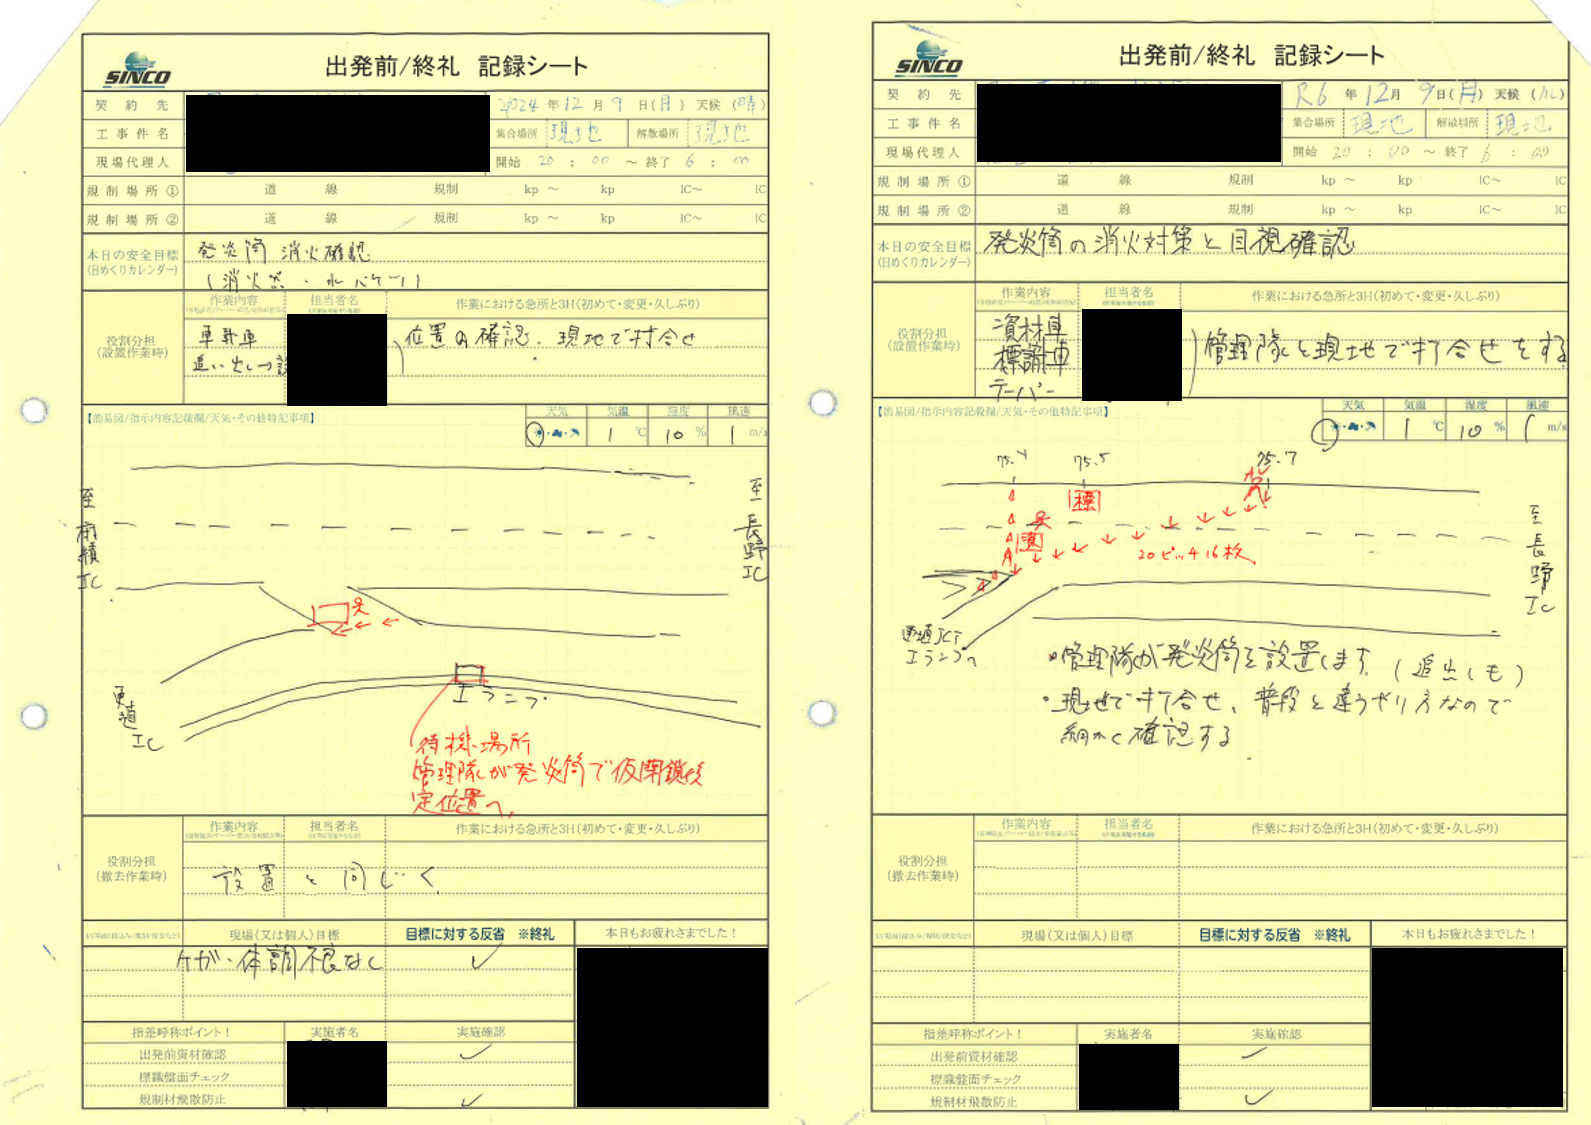 SINCO
出発前/終礼 記録シート
契約先
2024年12月9日(月) 天候(晴)
工事件名
集合場所 現地 解散場所 現地
現場代理人
開始 20:00 ～ 終了 6:00
規制場所① 道 線 規制 kp ～ kp IC～ IC
規制場所② 道 線 規制 kp ～ kp IC～ IC
本日の安全目標
(日めくりカレンダー)
発炎筒 消火確認
(消火器・水バケツ)
作業内容 担当者名 作業における急所と3H(初めて・変更・久しぶり)
役割分担
(設置作業時)
車載車
位置の確認、現地で打合せ
【簡易図/指示内容記載欄/天気・その他特記事項】
天気 気温 湿度 風速
1 ℃ 10 % 1 m/s
至 麻績IC
至 長野IC
更埴IC
Iランプ
待機場所
管理隊が発炎筒で仮閉鎖後
定位置へ。
作業内容 担当者名 作業における急所と3H(初めて・変更・久しぶり)
役割分担
(撤去作業時)
設置と同じく
現場(又は個人)目標 目標に対する反省 ※終礼 本日もお疲れさまでした！
ケガ・体調不良なく
指差呼称ポイント！ 実施者名 実施確認
出発前資材確認
標識盤面チェック
規制材飛散防止
SINCO
出発前/終礼 記録シート
契約先
R6年12月9日(月) 天候
工事件名
集合場所 現地 解散場所 現地
現場代理人
開始 20:00 ～ 終了 6:00
規制場所① 道 線 規制 kp ～ kp IC～ IC
規制場所② 道 線 規制 kp ～ kp IC～ IC
本日の安全目標
(日めくりカレンダー)
発炎筒の消火対策と目視確認
作業内容 担当者名 作業における急所と3H(初めて・変更・久しぶり)
役割分担
(設置作業時)
資材車
標識車
テーパー
管理隊と現地で打合せをする
【簡易図/指示内容記載欄/天気・その他特記事項】
天気 気温 湿度 風速
1 ℃ 10 % 1 m/s
75.4 75.5 75.7
標
資
20ピッチ16枚
至 長野IC
更埴JCT
Iランプ
・管理隊が発炎筒を設置します。(追出しも)
・現地で打合せ、普段と違うやり方なので
細かく確認する
作業内容 担当者名 作業における急所と3H(初めて・変更・久しぶり)
役割分担
(撤去作業時)
現場(又は個人)目標 目標に対する反省 ※終礼 本日もお疲れさまでした！
指差呼称ポイント！ 実施者名 実施確認
出発前資材確認
標識盤面チェック
規制材飛散防止